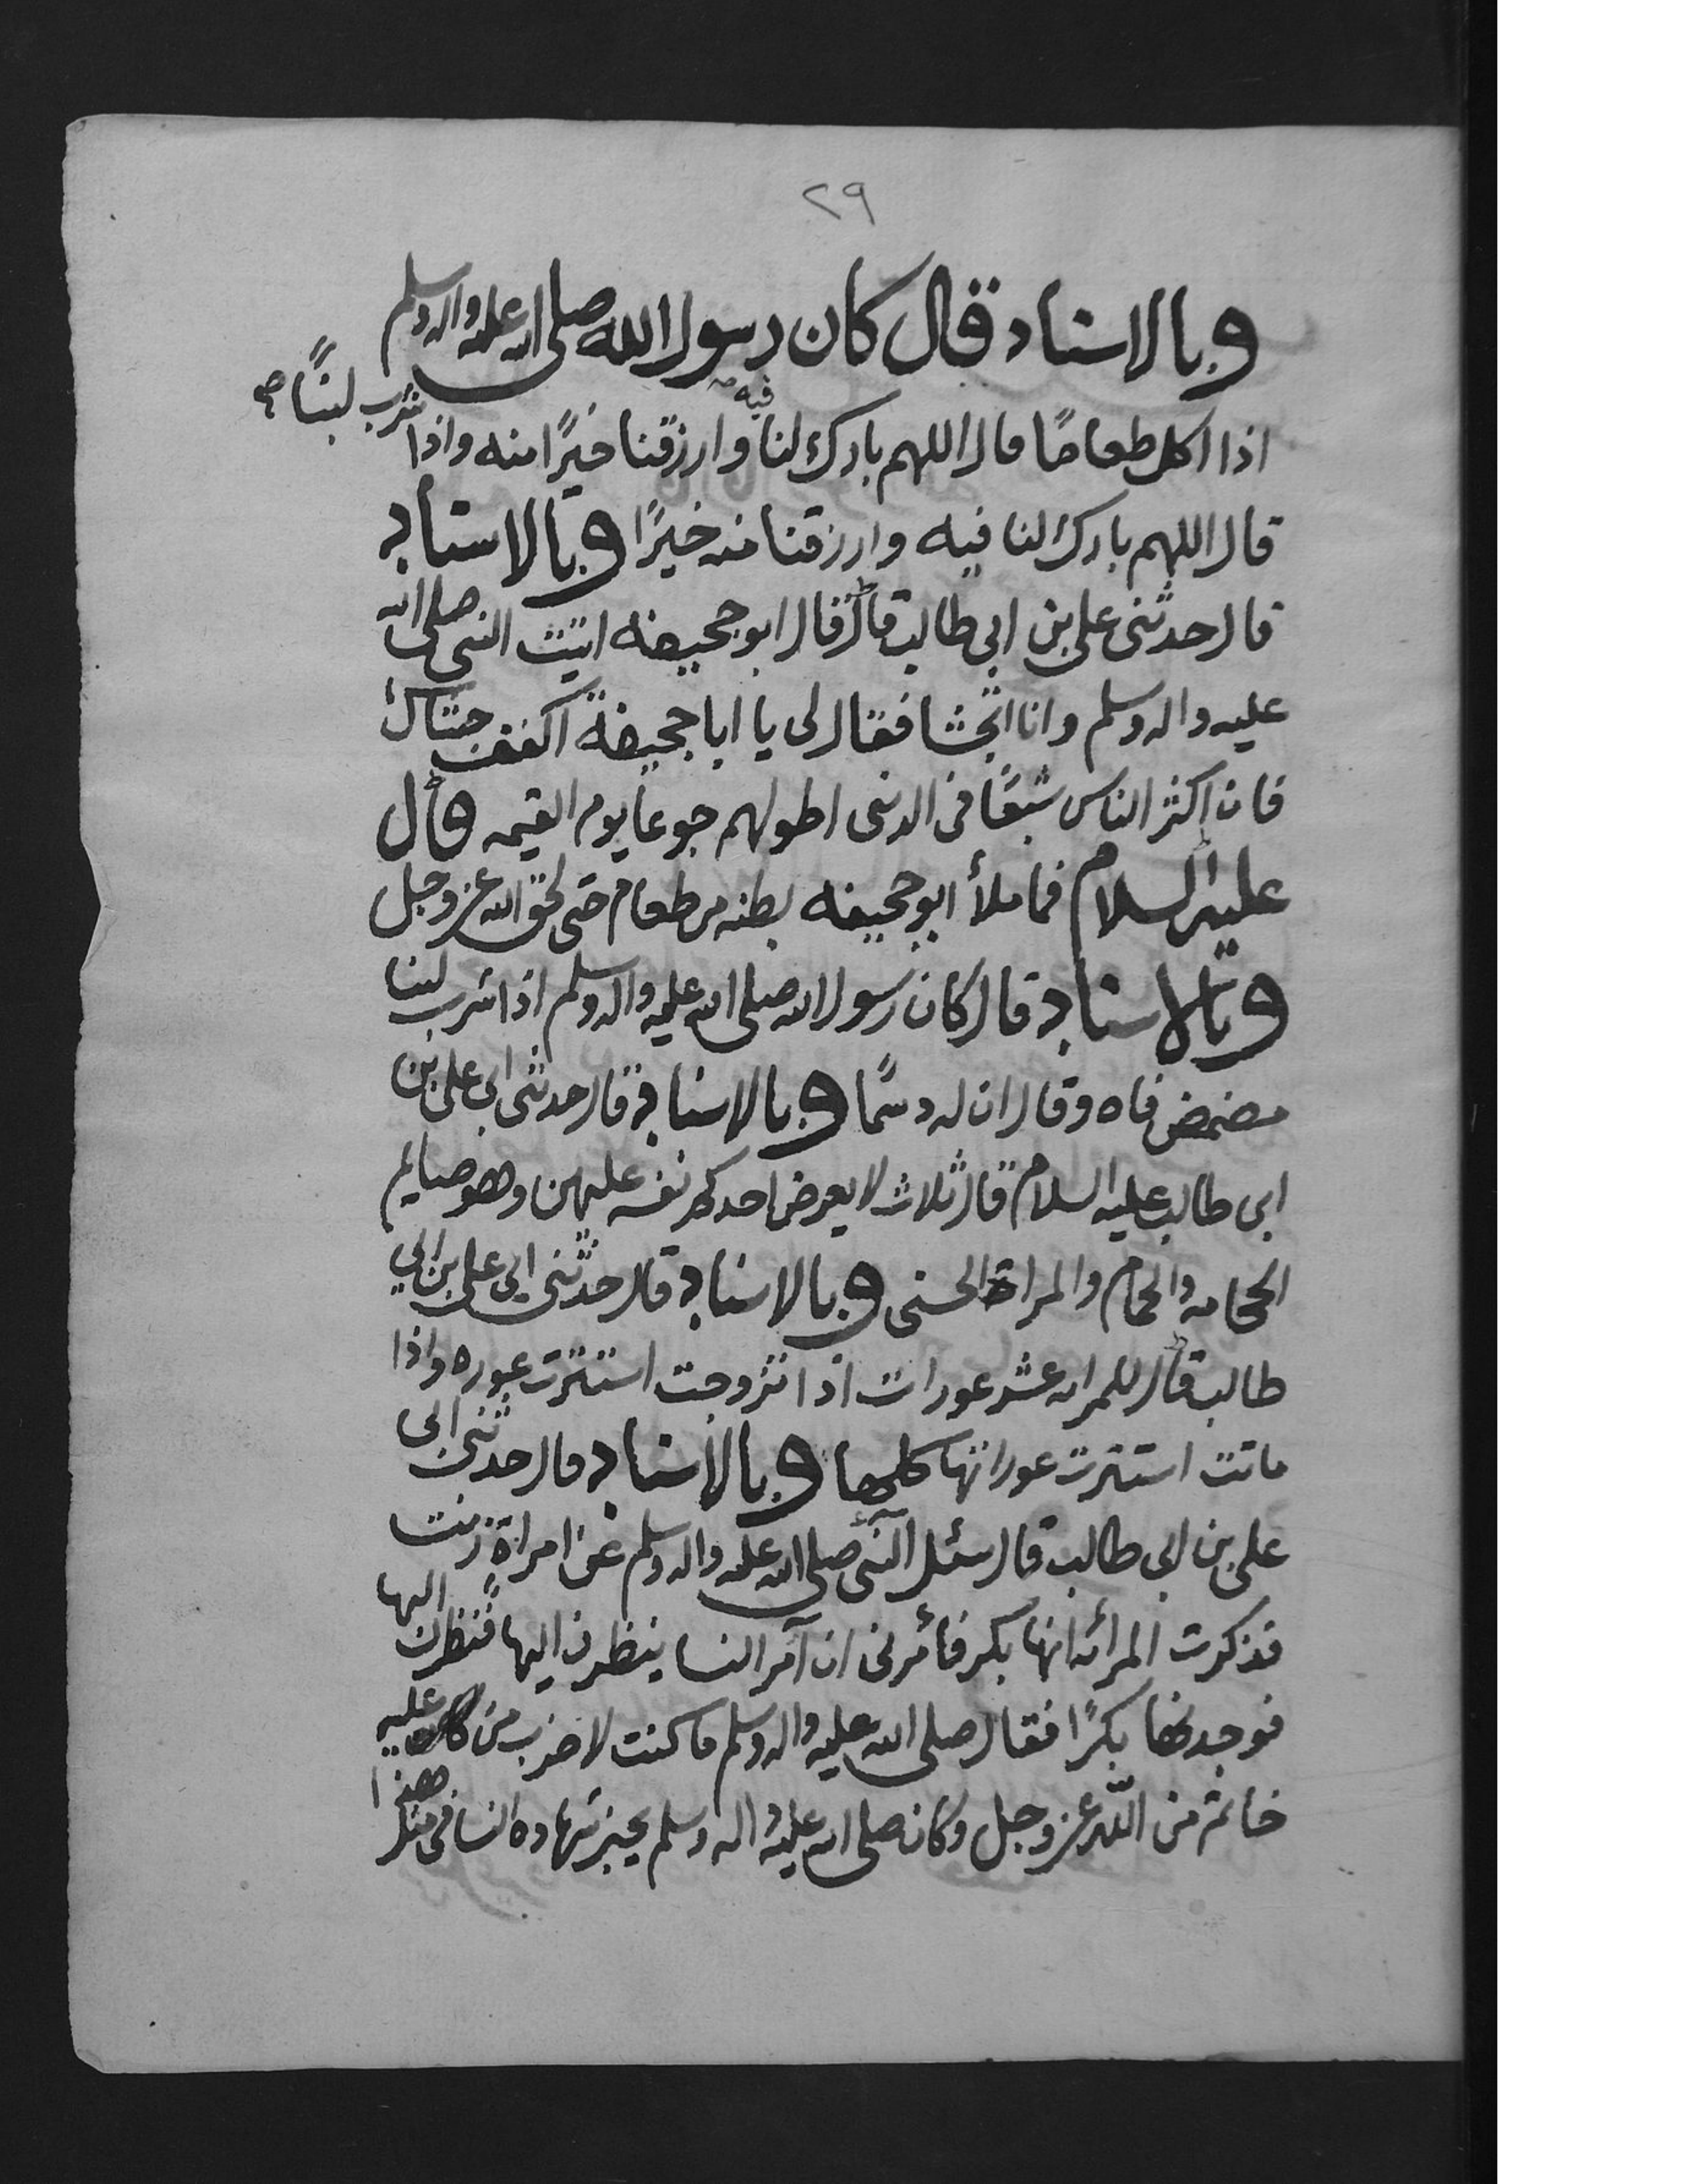 ٢٩
وبالاسناد قال كان رسول الله صلى الله عليه واله وسلم
اذا اكل طعامًا قال اللهم بارك لنا فيه وارزقنا خيرًا منه واذا شرب لبنًا صح
قال اللهم بارك لنا فيه وارزقنا منه خيرًا وبالاسناد
قال حدثنى على بن ابى طالب قال قال ابو جحيفه اتيت النبى صلى الله
عليه واله وسلم وانا اتجشا فقال لى يا ابا جحيفة اكفف جشاك
فان اكثر الناس شبعًا فى الدنيى اطولهم جوعا يوم القيمه وقال
عليه السلام فما ملأ ابو جحيفه بطنه من طعام حتى لحق الله عز وجل
وبالاسناد قال كان رسول الله صلى الله عليه واله وسلم اذا شرب لبنا
مضمض فاه وقال ان له دسمًا وبالاسناد قال حدثنى ابى على بن
ابى طالب عليه السلام قال ثلاث لا يعرض احدكم نفسه عليهن وهو صايم
الحجامه والحمام والمراة الحسنى وبالاسناد قال حدثنى ابى على بن ابي
طالب قال للمراه عشر عورات اذا تزوجت استترت عوره واذا
ماتت استترت عوراتها كلها وبالاسناد قال حدثنى ابى
على بن ابى طالب قال سئل النبى صلى الله عليه واله وسلم عن امراة زنت
فذكرت المرأه انها بكر فأمرنى ان آمر النسا ينظرن اليها فنظرن اليها
فوجدنها بكرًا فقال صلى الله عليه واله وسلم ما كنت لاضرب من عليه
خاتم من الله عز وجل وكان صلى الله عليه واله وسلم يجيز شهاده النسا فى مثل هذا